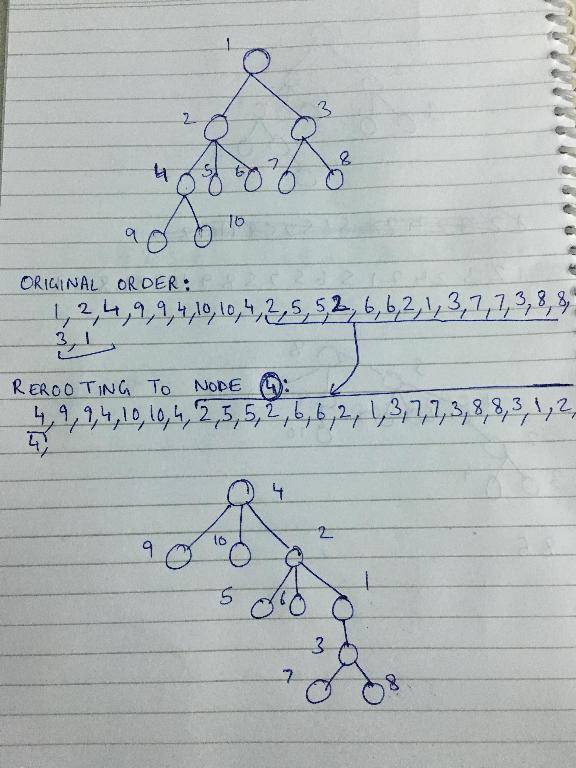 1
2 3
4 5 6 7 8
9 10
ORIGINAL ORDER:
1, 2, 4, 9, 9, 4, 10, 10, 4, 2, 5, 5, 2, 6, 6, 2, 1, 3, 7, 7, 3, 8, 8,
3, 1
REROOTING TO NODE 4:
4, 9, 9, 4, 10, 10, 4, 2, 5, 5, 2, 6, 6, 2, 1, 3, 7, 7, 3, 8, 8, 3, 1, 2,
4,
4
9 10 2
5 6 1
3
7 8